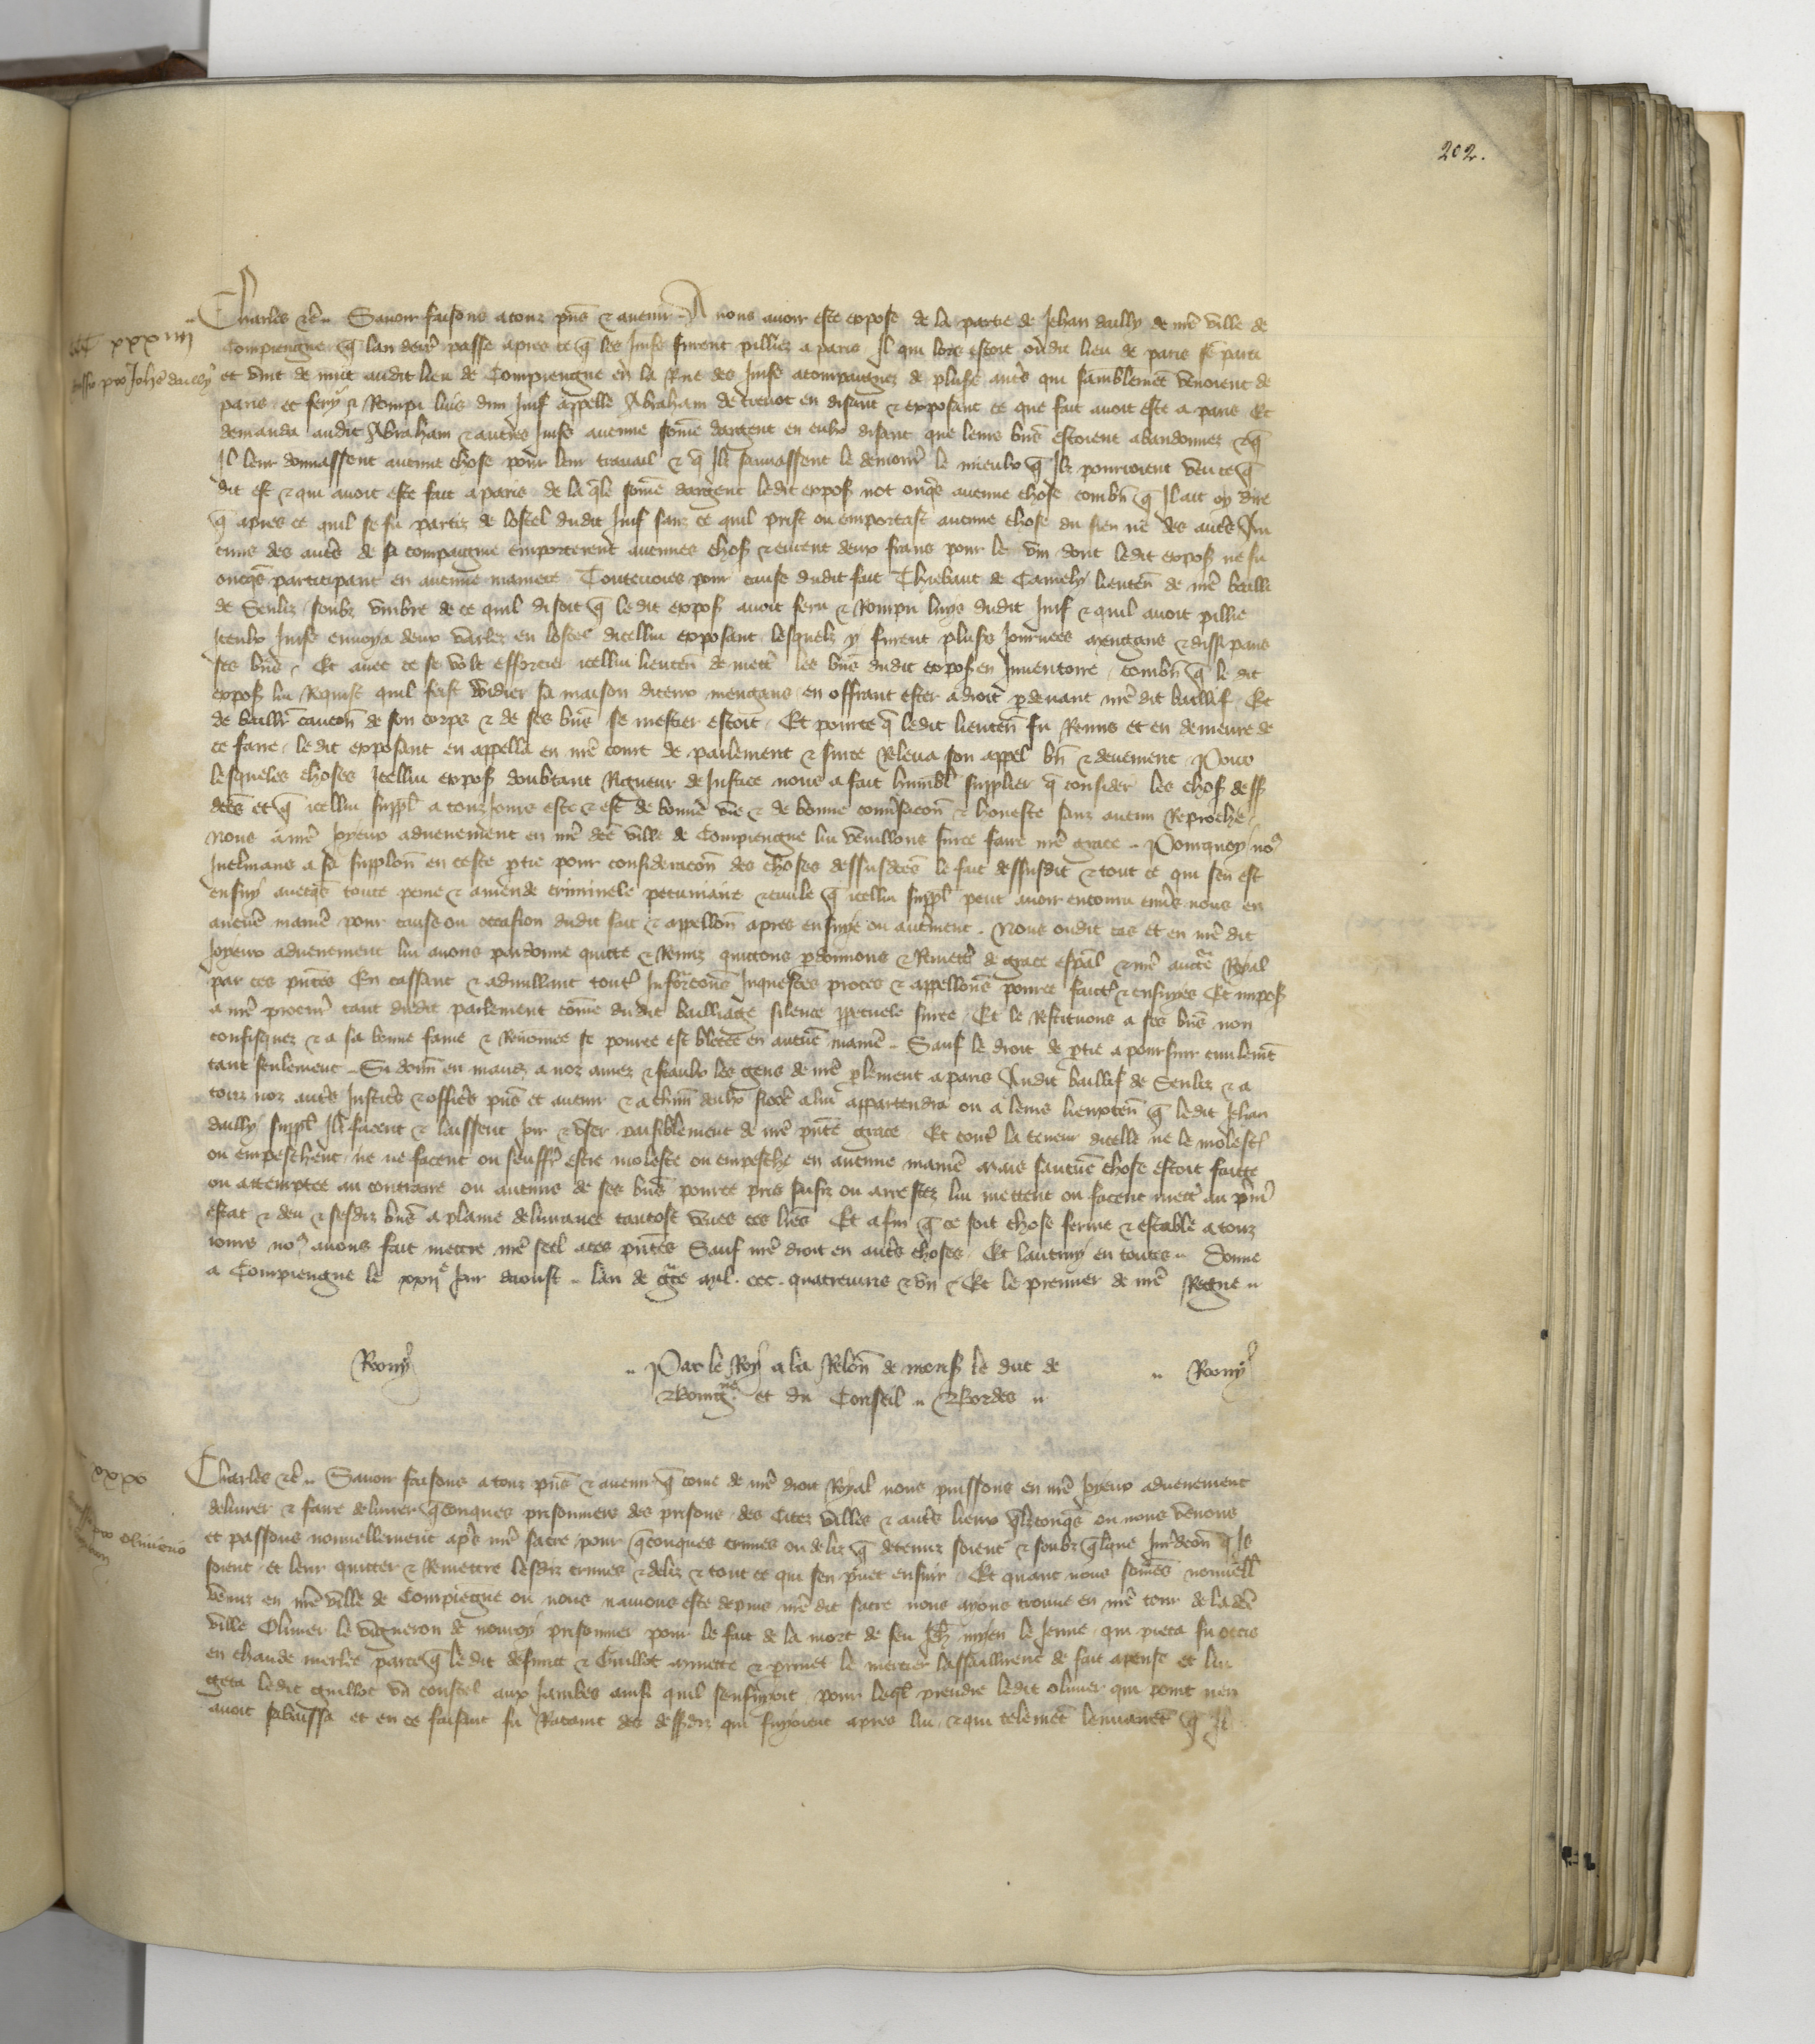 202.
CC XXXIIII
Remissio pro Johe dailly
Charles etc. Savoir faisons a touz pñs et avenir A nous avoir este expose de la partie de Jehan dailly de nre ville de
Compiengne que lan derr passe apres ce que les Juifs furent pilliez a paris Il qui lors estoit oudit lieu de paris se parti
et vint de nuit audit lieu de Compiengne en la Rue des Juifs acompaignez de plusrs autrs qui samblement venoient de
paris et fery et Rompi luis dun Juif appelle Abraham de trevot en disant et exposant ce que fait avoit este a paris Et
demanda audit Abraham et autres Juifs aucune some dargent en eulx disant que leurs biens estoient abandonnez et que
Il leur donnassent aucune chose pour leur travail et que Ilz sauvassent le demour le mieulx que Ilz pourroient veu ce que
dit est et qui avoit este fait a paris de laqle some dargent ledit expos not onqs aucune chose combn que Il ait oy dire
que apres ce quil se fu partiz de lostel dudit Juif sanz ce quil prist ou emportast aucune chose du sien ne des autrs Au
cuns des autrs de sa compaignie emporterent aucunes chos et eurent deux frans pour le vin dont ledit expos ne fu
oncqs participant en aucune maniere Toutevoies pour cause dudit fait Thiebaut de Cameli lieuten de nre bailli
de Senliz soubz umbre de ce quil disoit que ledit expos avoit feru et Rompu luys dudit Juif et quil avoit pillie
Iceulx Juifs envoya deux varlez en lostel dicellui exposant lesquelz y furent plusrs Journees mengans et dissipans
ses biens Et avec ce se volt efforcier icellui lieuten de mettr les biens dudit expos en Inventoire combn que le dit
expos lui Requist quil feist vuidier sa maison diceux mengans en offrant ester a droit pdevant nre dit baillif Et
de baillr caucon de son corps et de ses biens se mestier estoit Et pource que ledit lieuten fu Remis et en demeure de
ce faire ledit exposant en appella en nre court de parlement et surce Releva son appel bn et deuement Pour
lesqueles choses Icellui expos doubtant Rigueur de Justice nous a fait humbl supplier que consider les chos dess
dces et que icellui suppl a touz Jours este et est de bonne vie et de bonne conversacon et honeste sanz aucun Reproche
Nous a nre Joyeux advenement en nre dce ville de Compiengne lui veuillons surce faire nre grace Pourquoy nous
Inclinans a sa supplon en ceste ptie pour consideracon des choses dessusdces le fait dessusdit et tout ce qui sen est
ensuy avecqs toute peine et amende criminele pecuniaire et civile que icellui suppl peut avoir encouru envs nous en
aucune manie pour cause ou occasion dudit fait et appellon apres ensuye ou autrement Nous oudit cas et en nre dit
Joyeux advenement lui avons pardonne quitte et Remis quittons pdonnons et Remett de grace espal et nre aucte Royal
par ces pntes En cassant et adnullant tout Informcons Inquestes proces et appellons pource fait et ensuyes Et impos
a nre procur tant dudit parlement come dudit bailliage silence ppetuele surce Et le Restituons a ses biens non
confisquez et a sa bonne fame et Renomee se pource est blecee en aucune manie Sauf le droit de ptie a poursuir civilemt
tant seulement Si donn en mand a noz amez et feaulx les gens de nre plement a paris Audit baillif de Senliz et a
touz noz autrs Justicrs et officrs pns et avenir et a chun deulx sicoe a lui appartendra ou a leurs lieuxten que ledit Jehan
dailly suppl Ilz facent et laissent Joir et user paisiblement de nre pnte grace Et contr la teneur dicelle ne le molest
ou empeschent ne ne facent ou seuffr estre moleste ou empesche en aucune manie mais saucune chose estoit faitte
ou attemptee au contraire ou aucuns de ses biens pource pris saisiz ou arrestez lui mettent ou facent mett au pm
estat et deu et sesdiz biens a plaine delivrance tantost veues ces lres Et afin que ce soit chose ferme et estable a touz
jours nous avons fait mettre nre seel a ces pntes Sauf nre droit en autrs choses Et lautruy en toutes Donne
a Compiengne le xxiie Jour daoust lan de gce mil ccc quatrevins et un Et le premier de nre Regne
Rouny
Par le Roy a la Relon de mons le duc de
Bourgne et du Conseil Bordes
Rouny
XXXV
Remissio pro Oliverio
Charles etc. Savoir faisons a touz pns et avenir que come de nre droit Royal nous puissons en nre Joyeux advenement
delivrer et faire delivrer qconques prisonniers des prisons des Citez villes et autrs lieux qlzconqs ou nous venons
et passons nouvellement aps nre sacre pour qconques crimes ou deliz que detenuz soient et soubz qlque Jurdicon que Ils
soient et leur quitter et Remettre lesdiz crimes et deliz et tout ce qui sen puet ensuir Et quant nous somes nouvell
venuz en nre ville de Compiegne ou nous navions este depuis nre dit sacre nous ayons trouve en nre tour de ladce
ville Olivier le vigneron de nouroy prisonnier pour le fait de la mort de feu Jeh le Jeune qui pieca fu occis
en chaude meslee parceque le dit defunct et Guillot et le mercier lassaillirent de fait apense et lui
geta ledit guillot un coustel aux Jambes ainsi quil senfuioit pour leql prendre ledit olivier qui point nen
avoit sabaissa et en ce faisant fu Rataint des dessdiz qui fuyoient apres lui et qui telemet que Il